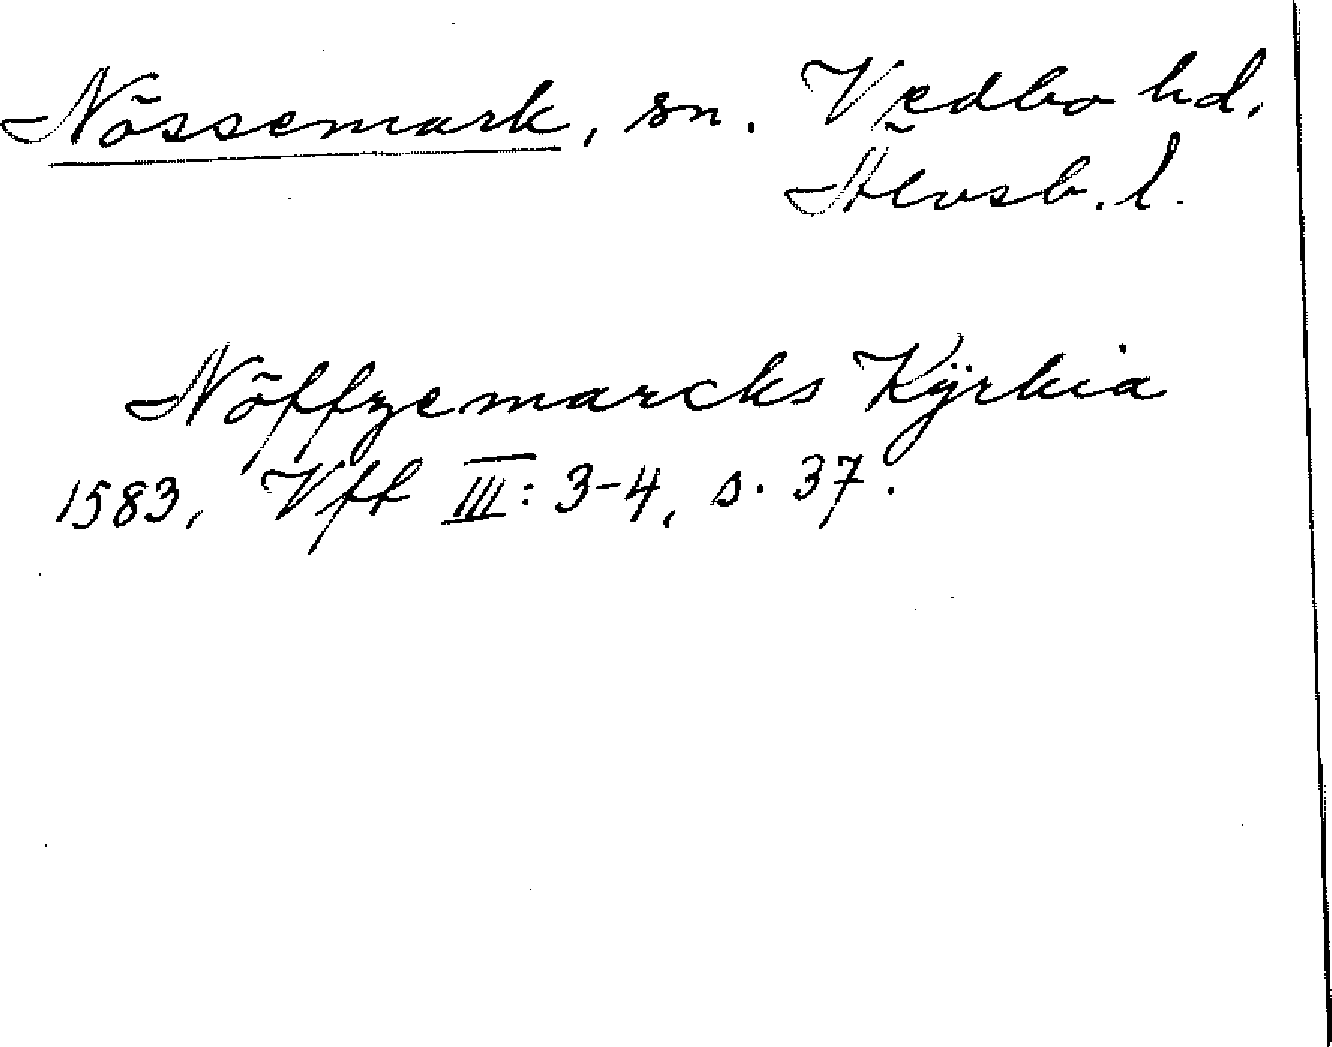 Nössemark, sn. Vedbo hd.
Älvsb. l.
Nöffzemarcks Kÿrkia
1583, Vff III: 3-4, s. 37.